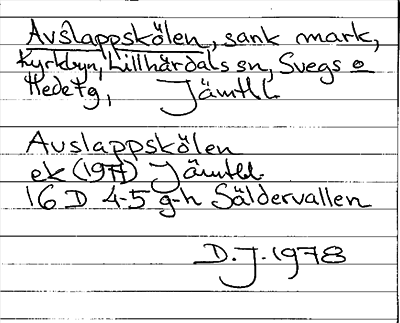 Avslappskölen, sank mark,
Kyrkbyn, Lillhärdals sn, Svegs o
Hede tg, Jämtll
Avslappskölen
ek (1977) Jämtll.
16 D 4-5 g-h Säldervallen
D.J. 1978